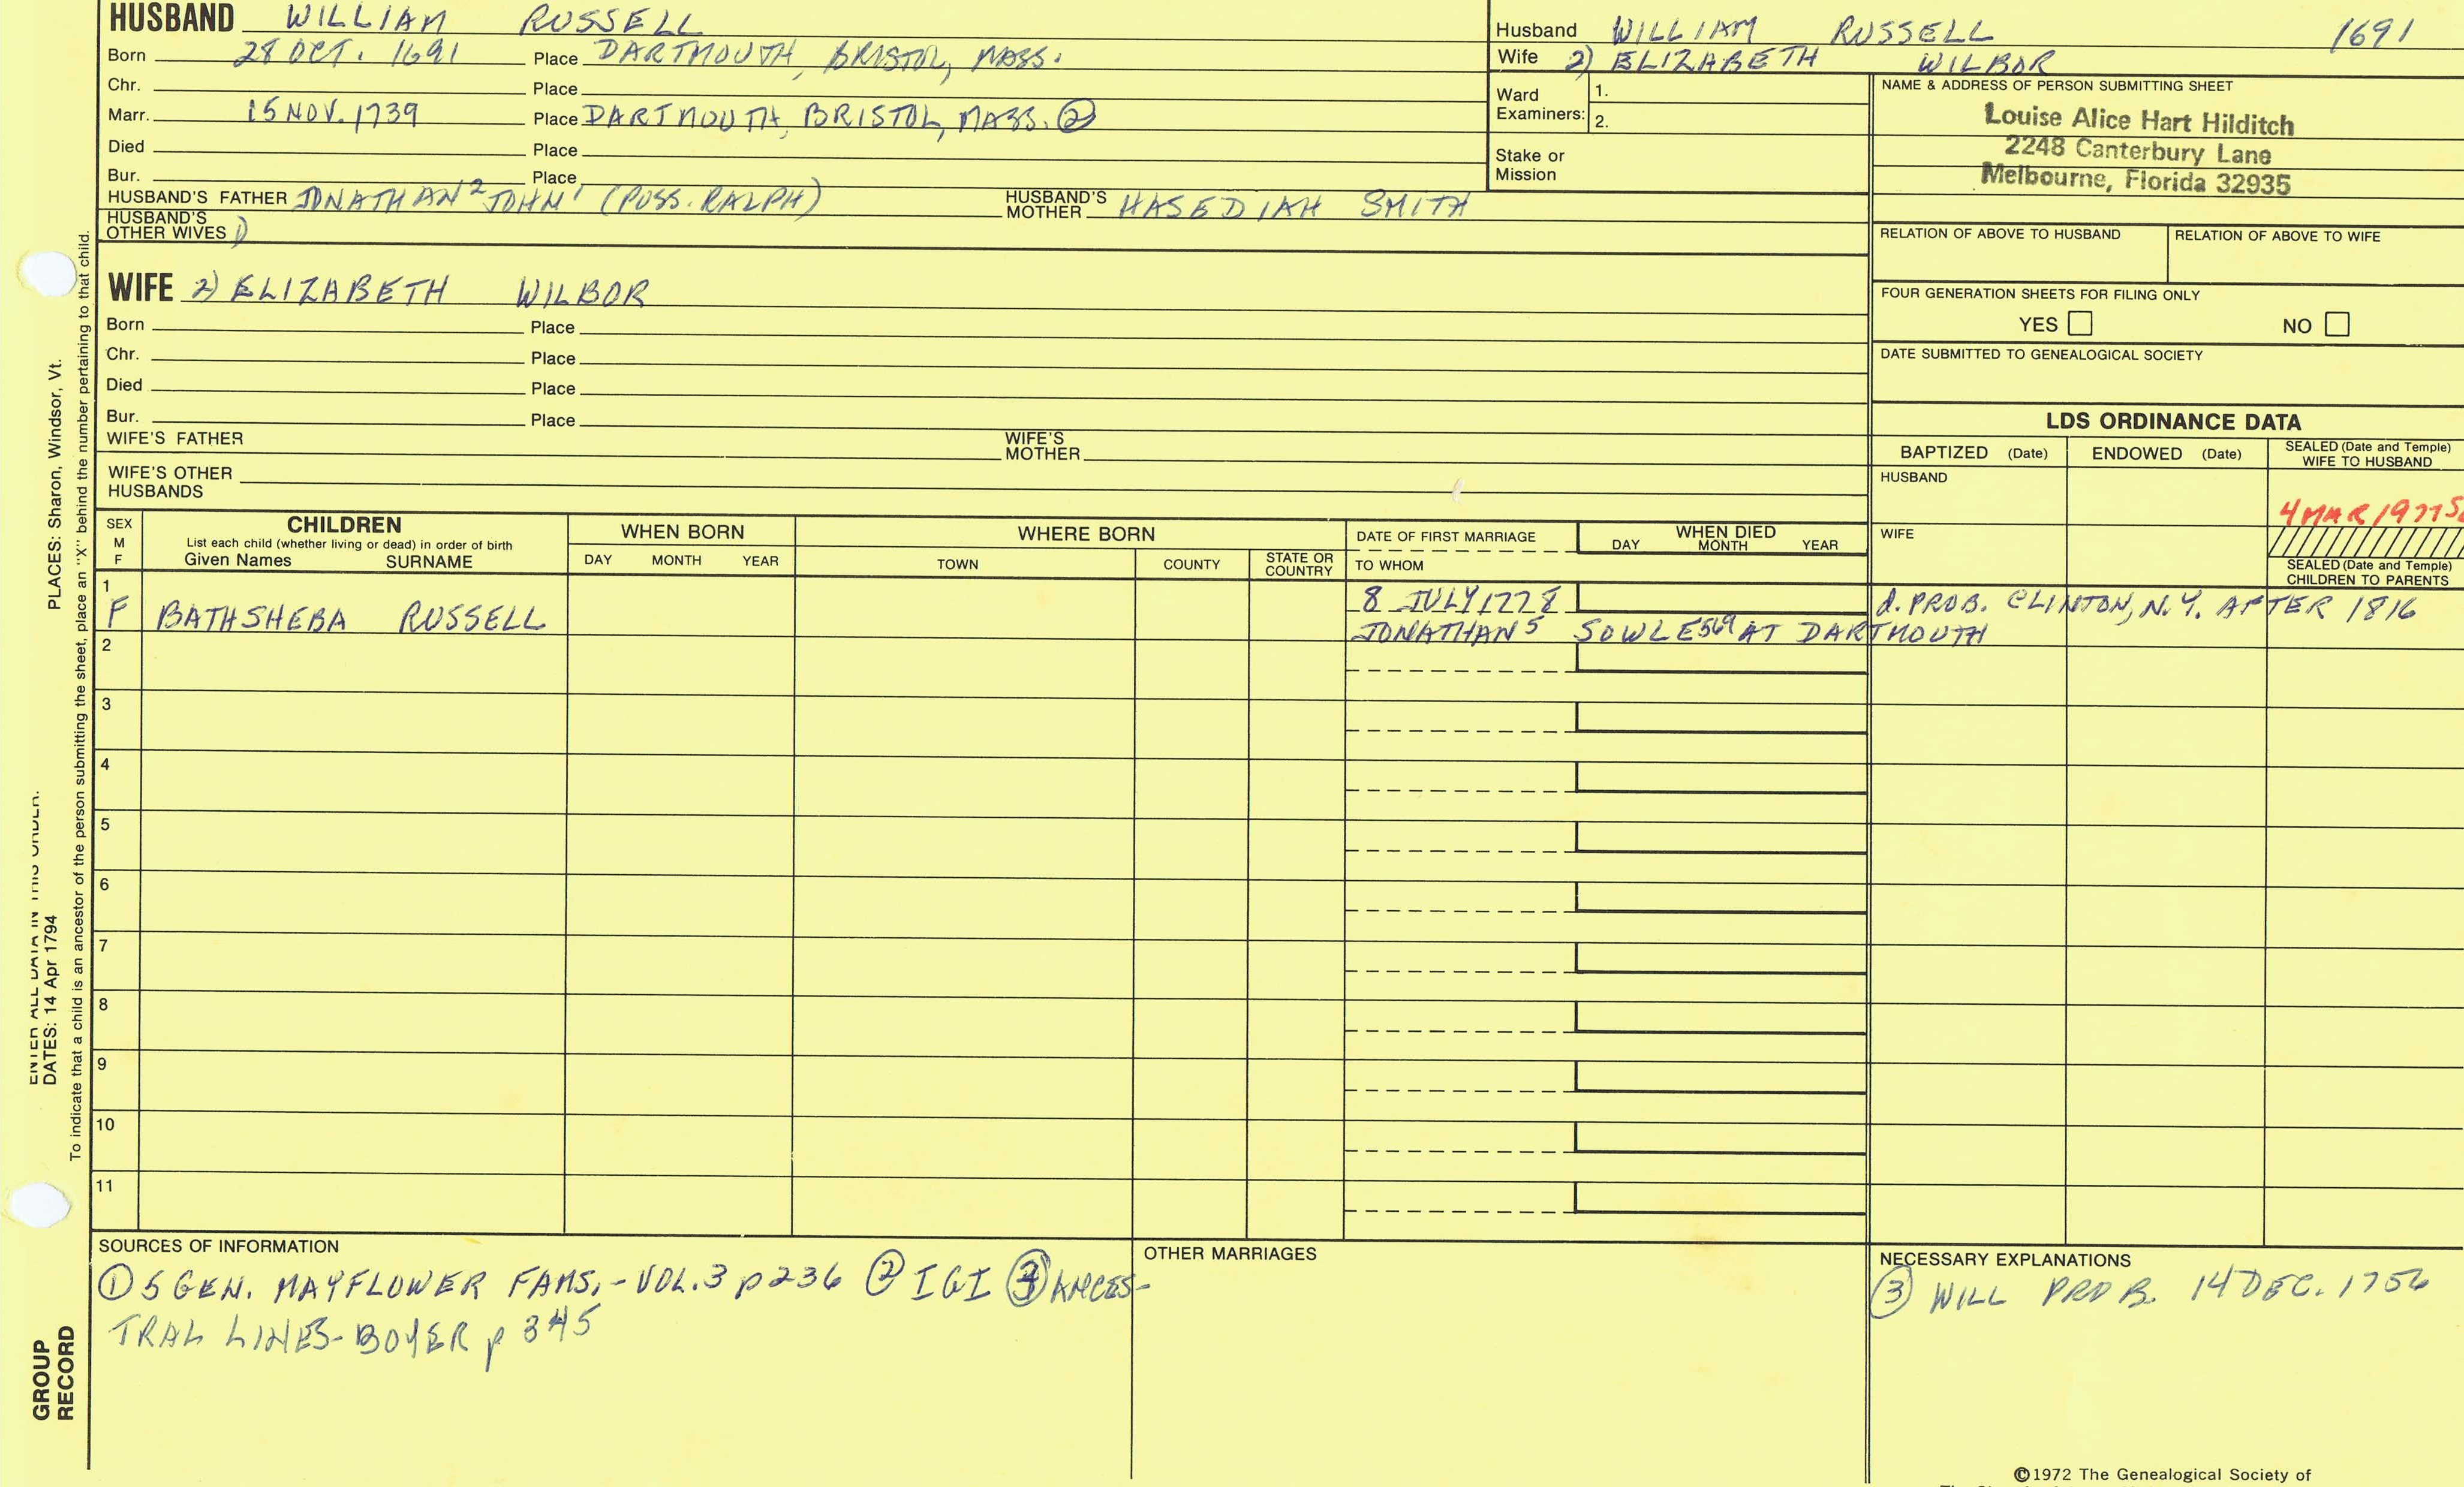 HUSBAND WILLIAM RUSSELL
Born 28 OCT. 1691 Place DARTMOUTH, BRISTOL, MASS.
Chr. Place
Marr. 15 NOV. 1739 Place DARTMOUTH, BRISTOL, MASS. ②
Died Place
Bur. Place
HUSBAND'S FATHER JONATHAN² JOHN¹ (POSS. RALPH) HUSBAND'S MOTHER HASEDIAH SMITH
HUSBAND'S OTHER WIVES 1)
WIFE 2) ELIZABETH WILBOR
Born Place
Chr. Place
Died Place
Bur. Place
WIFE'S FATHER WIFE'S MOTHER
WIFE'S OTHER HUSBANDS
Husband WILLIAM RUSSELL 1691
Wife 2) ELIZABETH WILBOR
Ward Examiners: 1.
2.
Stake or Mission
NAME & ADDRESS OF PERSON SUBMITTING SHEET
Louise Alice Hart Hilditch
2248 Canterbury Lane
Melbourne, Florida 32935
RELATION OF ABOVE TO HUSBAND RELATION OF ABOVE TO WIFE
FOUR GENERATION SHEETS FOR FILING ONLY
YES NO
DATE SUBMITTED TO GENEALOGICAL SOCIETY
LDS ORDINANCE DATA
BAPTIZED (Date) ENDOWED (Date) SEALED (Date and Temple) WIFE TO HUSBAND
HUSBAND
4 MAR 1977
WIFE
SEALED (Date and Temple) CHILDREN TO PARENTS
SEX M F
CHILDREN
List each child (whether living or dead) in order of birth
Given Names SURNAME
WHEN BORN
DAY MONTH YEAR
WHERE BORN
TOWN COUNTY STATE OR COUNTRY
DATE OF FIRST MARRIAGE
TO WHOM
WHEN DIED
DAY MONTH YEAR
1
F BATHSHEBA RUSSELL 8 JULY 1778 d. PROB. CLINTON, N.Y. AFTER 1816
JONATHAN⁵ SOWLE⁵⁶⁹ AT DARTMOUTH
2
3
4
5
6
7
8
9
10
11
SOURCES OF INFORMATION
① 5 GEN. MAYFLOWER FAMS.-VOL.3 p236 ② IGI ③ ANCES-
TRAL LINES-BOYER p 345
OTHER MARRIAGES
NECESSARY EXPLANATIONS
③ WILL PROB. 14 DEC. 1756
©1972 The Genealogical Society of
PLACES: Sharon, Windsor, Vt.
DATES: 14 Apr 1794
To indicate that a child is an ancestor of the person submitting the sheet, place an "X" behind the number pertaining to that child.
GROUP
RECORD